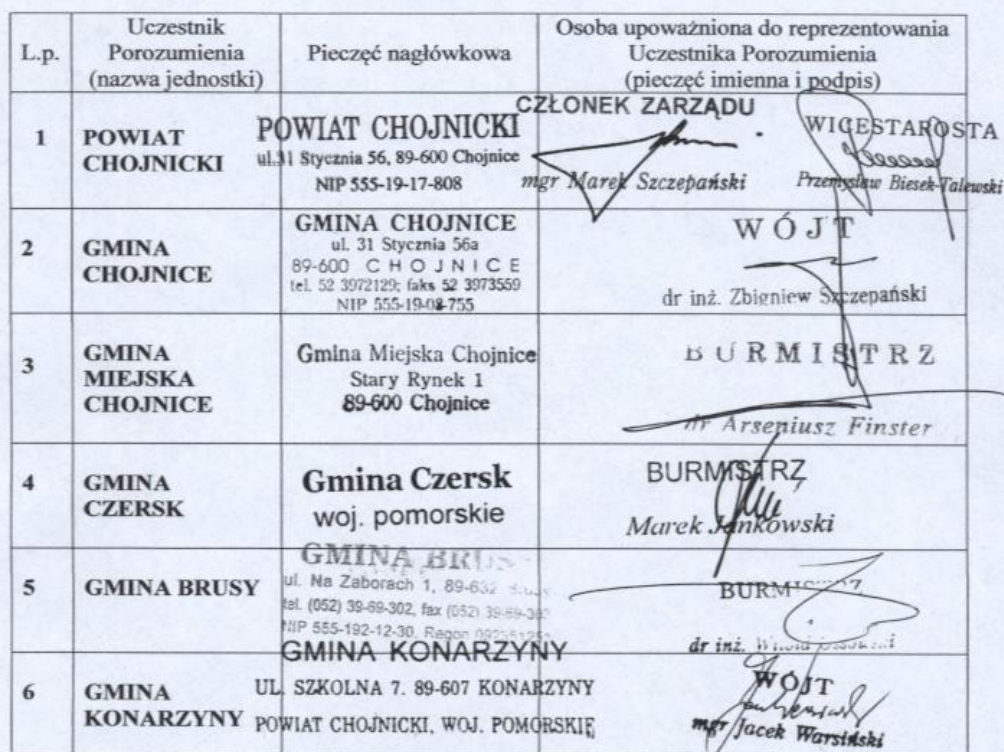 L.p.
Uczestnik
Porozumienia
(nazwa jednostki)
Pieczęć nagłówkowa
Osoba upoważniona do reprezentowania
Uczestnika Porozumienia
(pieczęć imienna i podpis)
1
POWIAT
CHOJNICKI
POWIAT CHOJNICKI
ul.31 Stycznia 56, 89-600 Chojnice
NIP 555-19-17-808
CZŁONEK ZARZĄDU
mgr Marek Szczepański
WICESTAROSTA
Przemysław Biesek-Talewski
2
GMINA
CHOJNICE
GMINA CHOJNICE
ul. 31 Stycznia 56a
89-600 CHOJNICE
tel. 52 3972129; faks 52 3973559
NIP 555-19-08-755
WÓJT
dr inż. Zbigniew Szczepański
3
GMINA
MIEJSKA
CHOJNICE
Gmina Miejska Chojnice
Stary Rynek 1
89-600 Chojnice
BURMISTRZ
dr Arseniusz Finster
4
GMINA
CZERSK
Gmina Czersk
woj. pomorskie
BURMISTRZ
Marek Jankowski
5
GMINA BRUSY
GMINA BRUSY
ul. Na Zaborach 1, 89-632 Brusy
tel. (052) 39-69-302, fax (052) 39-69-302
NIP 555-192-12-30, Regon
BURMISTRZ
dr inż. Witold
6
GMINA
KONARZYNY
GMINA KONARZYNY
UL. SZKOLNA 7. 89-607 KONARZYNY
POWIAT CHOJNICKI, WOJ. POMORSKIE
WÓJT
mgr Jacek Warsiński